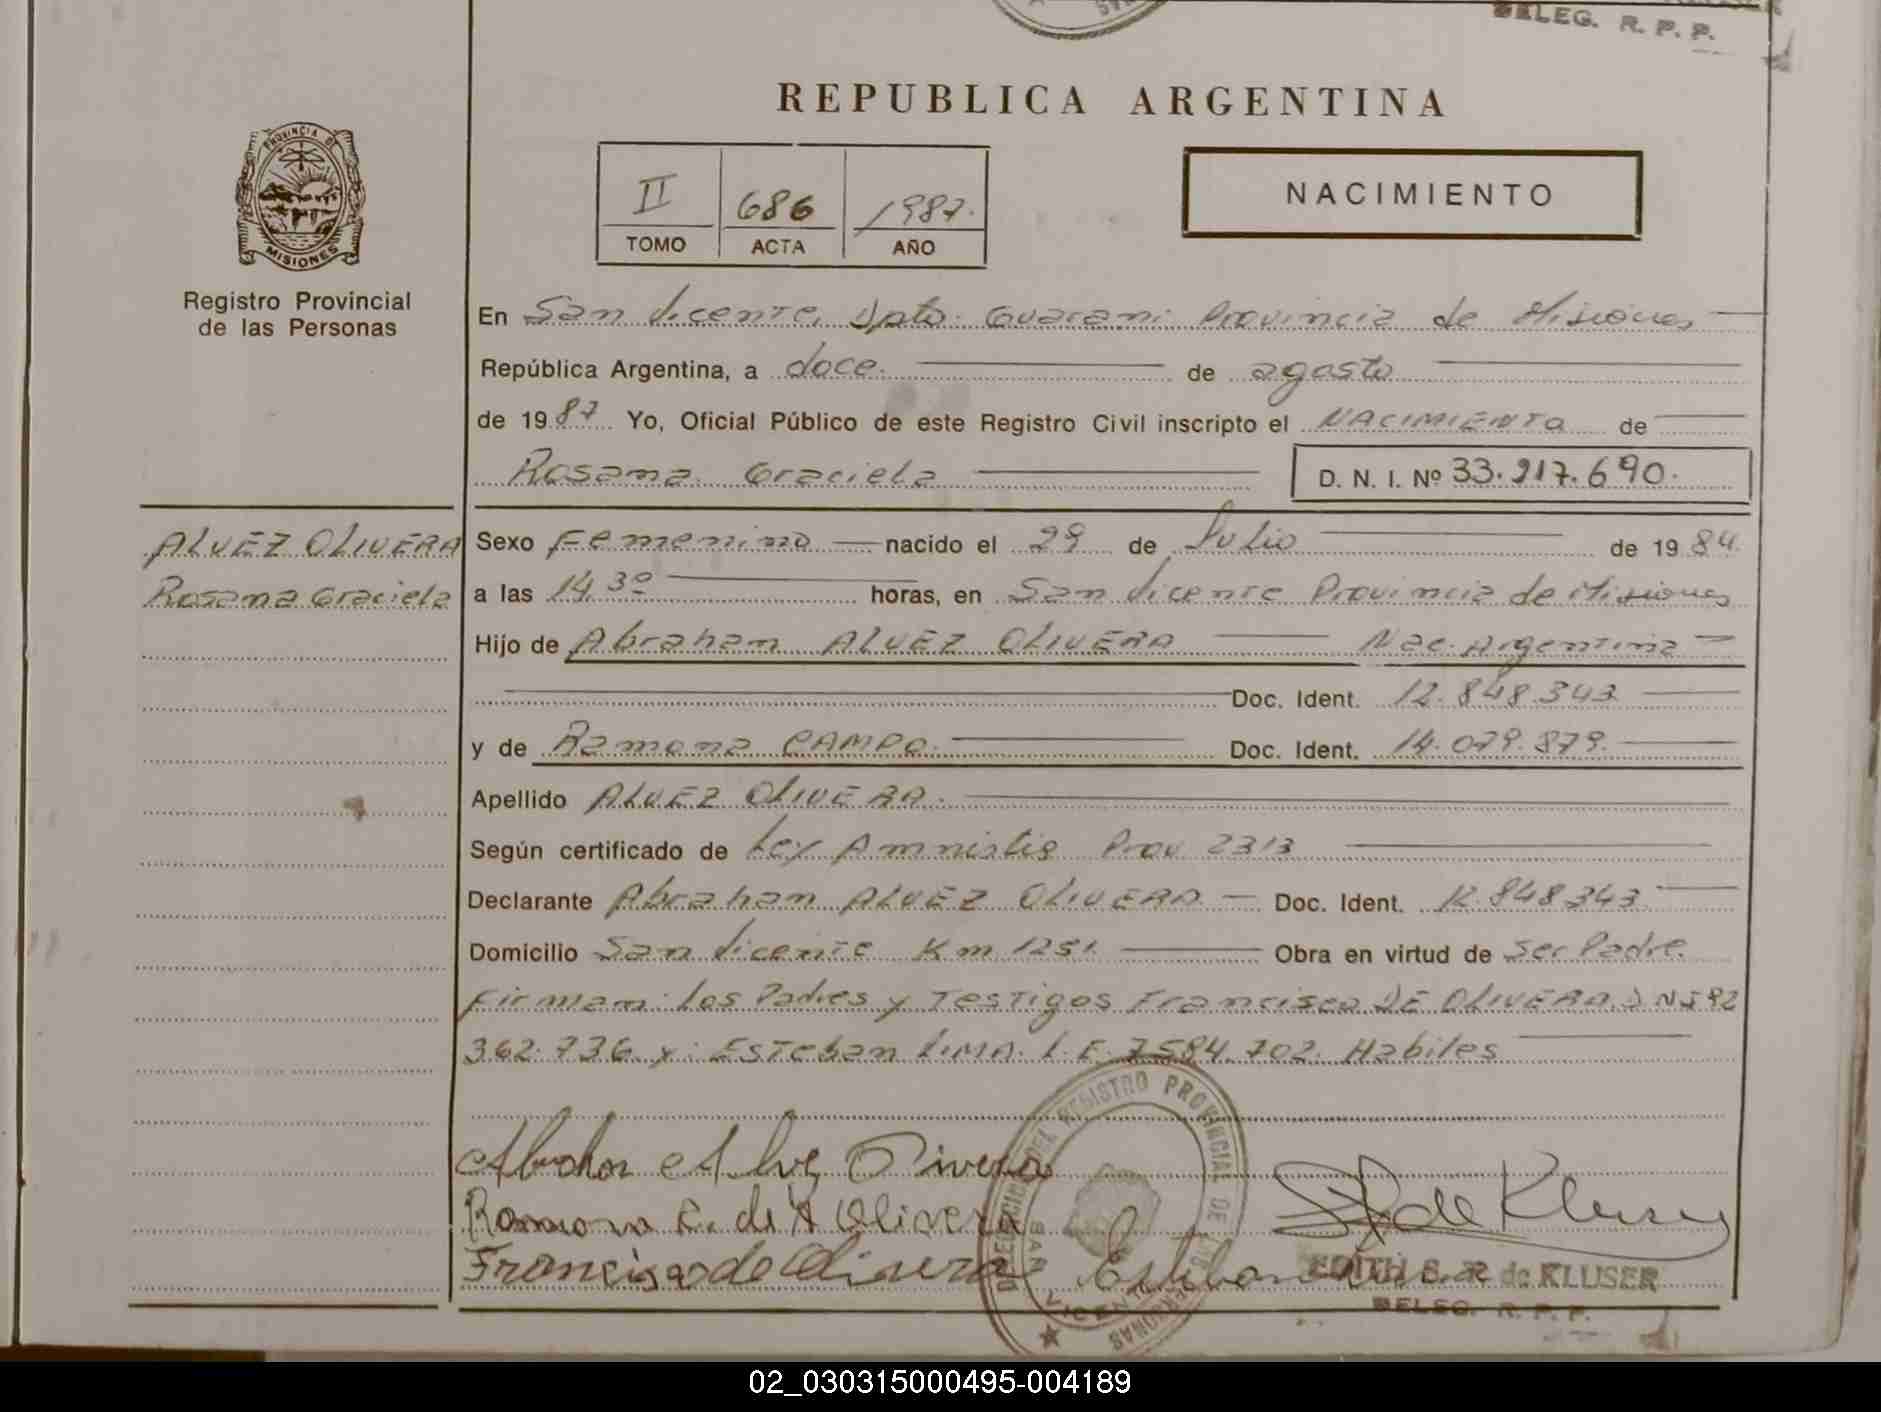 DELEG. R. P. P.
REPUBLICA ARGENTINA
PROVINCIA DE
MISIONES
Registro Provincial
de las Personas
II 686 1987.
TOMO ACTA AÑO
NACIMIENTO
En San Vicente, Dpto. Guarani Provincia de Misiones
República Argentina, a doce. de agosto
de 1987 Yo, Oficial Público de este Registro Civil inscripto el NACIMIENTO de
Rosana Graciela D. N. I. Nº 33.217.690.
ALVEZ OLIVERA
Rosana Graciela
Sexo Femenino nacido el 29 de Julio de 1984.
a las 14,30 horas, en San Vicente Provincia de Misiones
Hijo de Abraham ALVEZ OLIVERA Nac. Argentina
Doc. Ident. 12.848.343
y de Ramona CAMPO. Doc. Ident. 14.079.879.
Apellido ALVEZ OLIVERA.
Según certificado de Ley Amnistia Prov 2313
Declarante Abraham ALVEZ OLIVERA Doc. Ident. 12.848.343
Domicilio San Vicente Km 1251. Obra en virtud de ser Padre.
Firman: Los Padres y Testigos Francisco DE OLIVERA. D N I 92
362.736 y: Esteban LIMA. L.E. 7584.702. Habiles
Abrahan Alvez Olivera
Ramona C. de A Olivera
Francisco de Olivera
Esteban
de Kluser
EDITH S. R. de KLUSER
DELEG. R. P. P.
DEL REGISTRO PROVINCIAL DE
SAN VICENTE
02_030315000495-004189